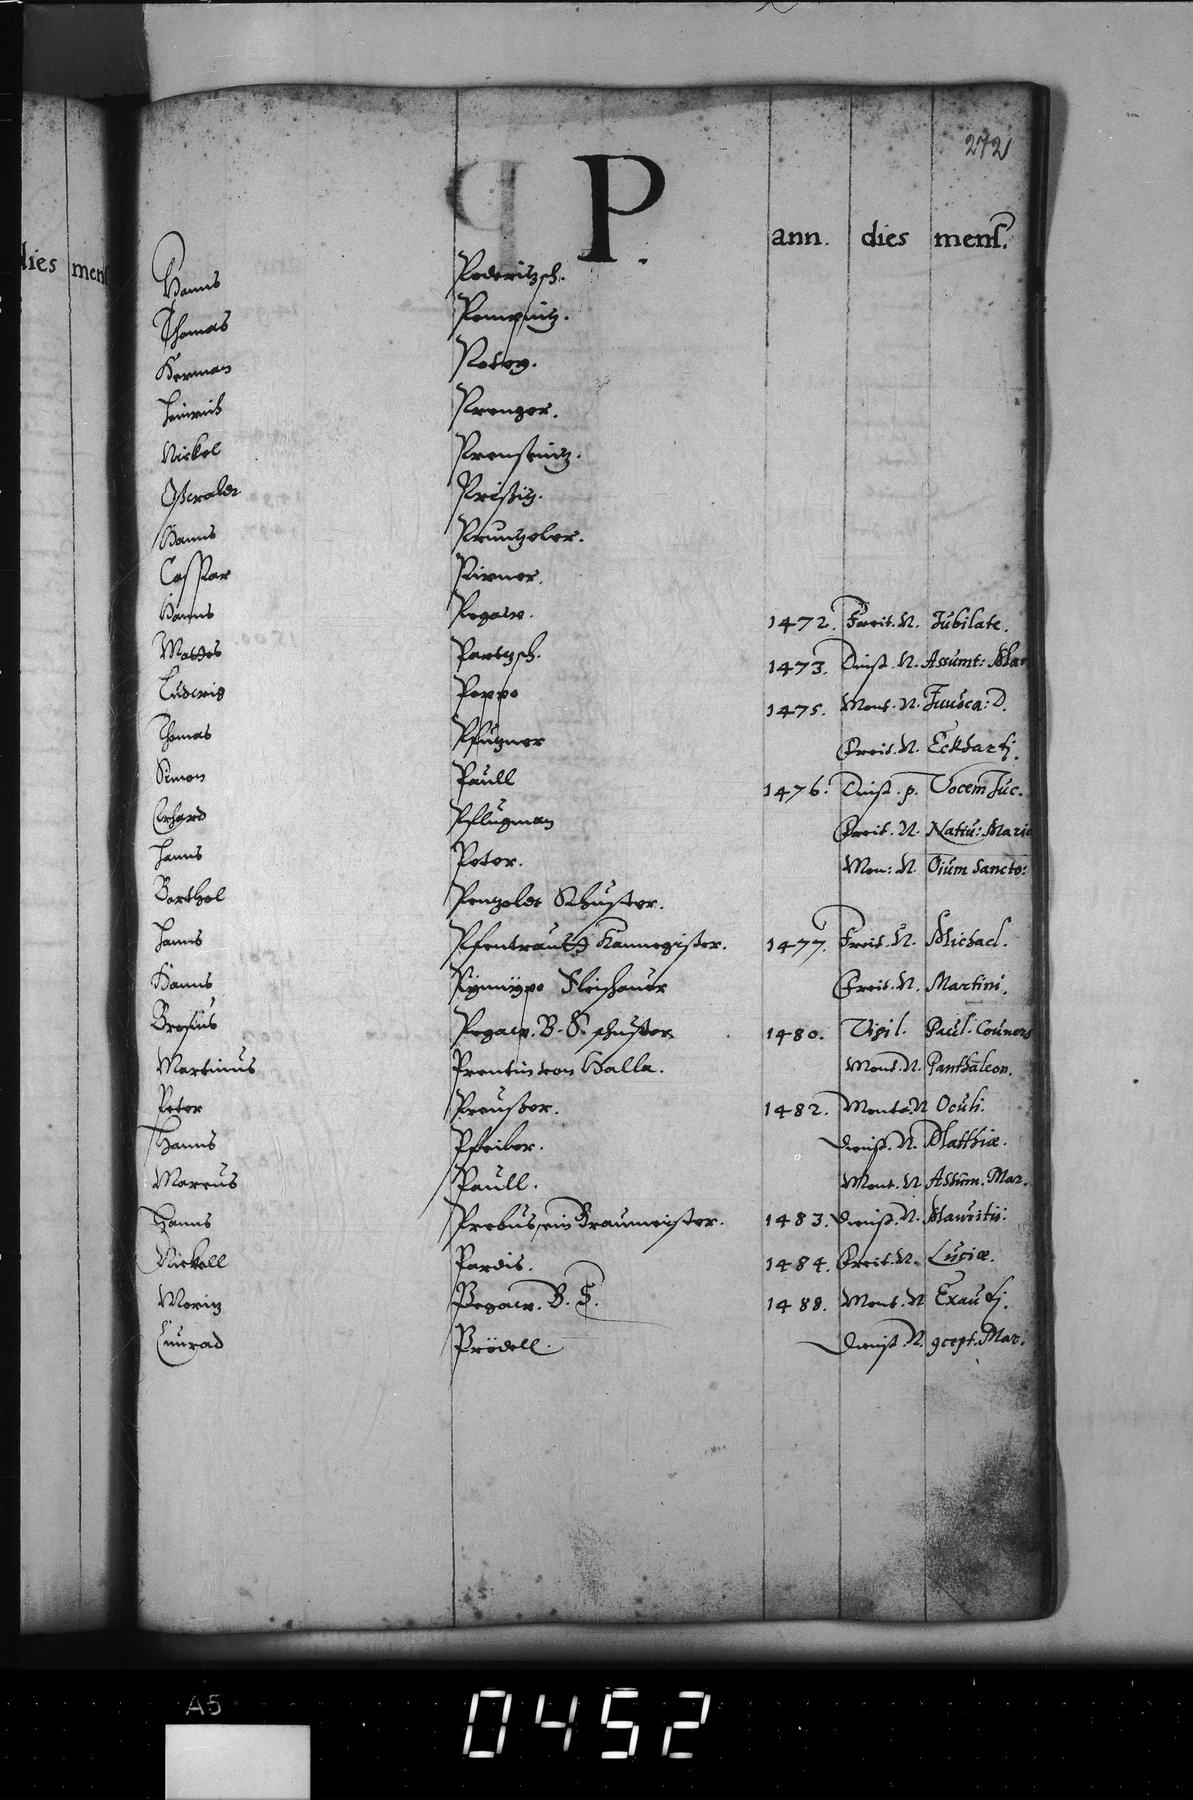 272
P.
ann. dies mens.
dies mens
Hanns Poderitzsch.
Thomas Pompnitz.
Herman Poley.
Heinrich Prenger.
Nickel Prensnitz.
Oßwaldt Prißitz.
Hanns Pruntzeler.
Casspar Pirner.
Hanns Pegaw. 1472. Freit. N. Jubilate.
Mattes Partzsch. 1473. Dinst. N. Assumt: Mar
Ludwig Poppo 1475. Mont. N. D.
Thomas Pfützner Freit. N. Eckhartj.
Simon Paull 1476. Dinst. p. Vocem Juc.
Erhard Pflugman Freit. N. Nativ: Marie
Hanns Peter. Mon: N. Oium Sancto:
Barthol Pengoldt Schuster.
Hanns Kannegißer. 1477. Freit. N. Michael.
Hanns Fleischauer Freit. N. Martini.
Brosius Pegaw. B. S. schuster. 1480. Vigil. Paul: Convers
Martinus Prentin von Halla. Mont. N. Panthaleon.
Peter Preußer. 1482. Monta. N Oculi.
Hanns Pfeiler. Dienst. N. Matthiæ.
Marcus Paull. Mont. N Assum. Mar.
Hanns Prebus, ein Braumeister. 1483. Dienst. N. Mauritii:
Nickell Pardis. 1484. Freit. N. Luciæ.
Moritz Pegaw. B. S. 1488. Mont. N Exaudj.
Cunrad Prödell. Dienst. N. 9cept. Mar.
A5
0452